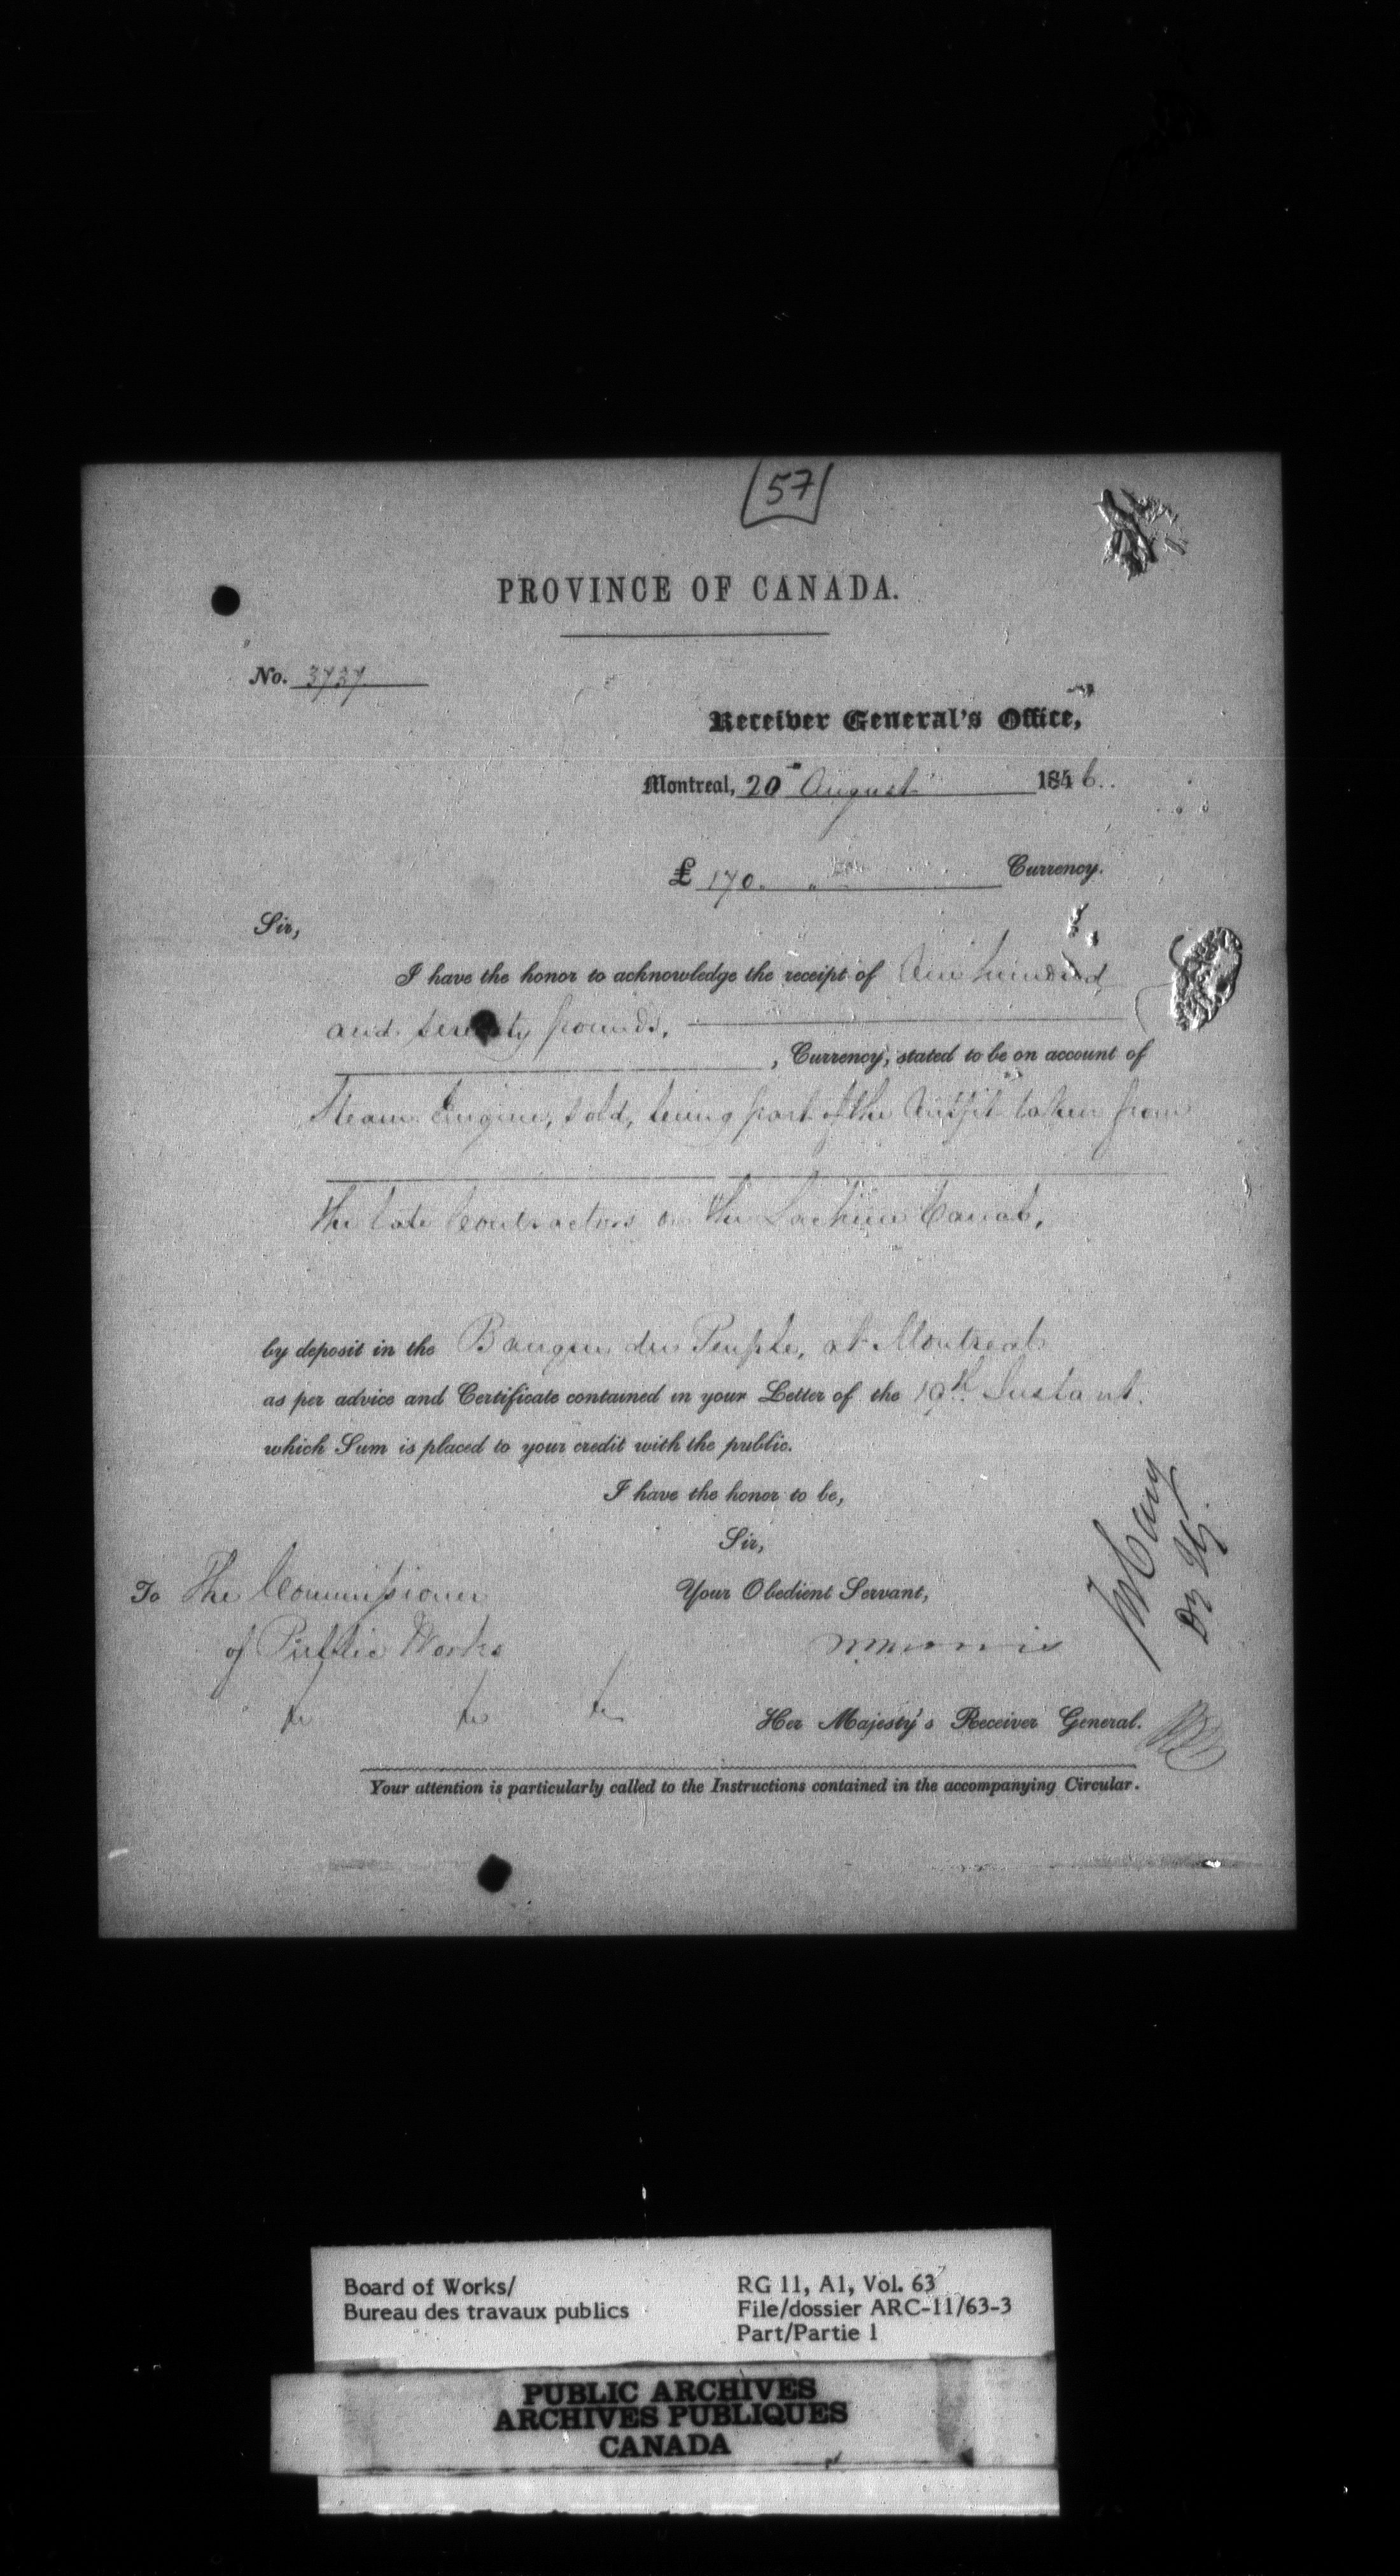 57
PROVINCE OF CANADA.
No. 3737
Receiver General's Office,
Montreal, 20 August 1846.
£ 170. " Currency.
Sir,
I have the honor to acknowledge the receipt of One hundred
and seventy pounds,
, Currency, stated to be on account of
Steam Engine, sold, being part of the Outfit taken from
the late Contractors on the Lachine Canal,
by deposit in the Banque du Peuple, at Montreal
as per advice and Certificate contained in your Letter of the 19th Instant.
which Sum is placed to your credit with the public.
I have the honor to be,
Sir,
To The Commissioner Your Obedient Servant,
of Public Works
Her Majesty's Receiver General.
Your attention is particularly called to the Instructions contained in the accompanying Circular.
Board of Works/
Bureau des travaux publics
RG 11, A1, Vol. 63
File/dossier ARC-11/63-3
Part/Partie 1
PUBLIC ARCHIVES
ARCHIVES PUBLIQUES
CANADA